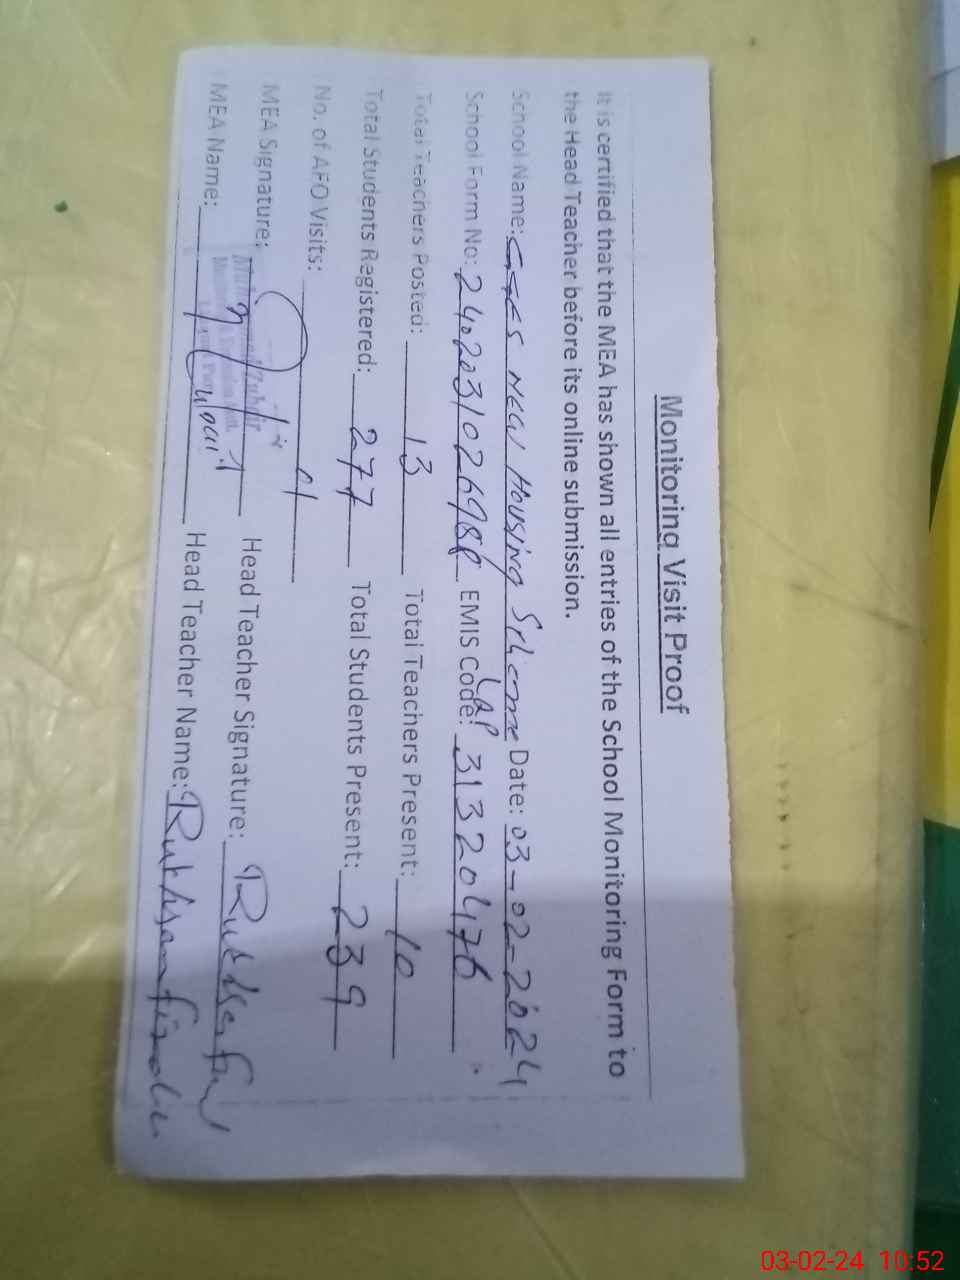 Monitoring Visit Proof
It is certified that the MEA has shown all entries of the School Monitoring Form to
the Head Teacher before its online submission.
School Name: New Housing Scheme Date: 03-02-2024
School Form No: EMIS Code: 31320476
Total Teachers Posted: 13 Total Teachers Present: 10
Total Students Registered: 277 Total Students Present: 239
No. of AEO Visits:
MEA Signature: Head Teacher Signature:
MEA Name: Head Teacher Name:
03-02-24 10:52